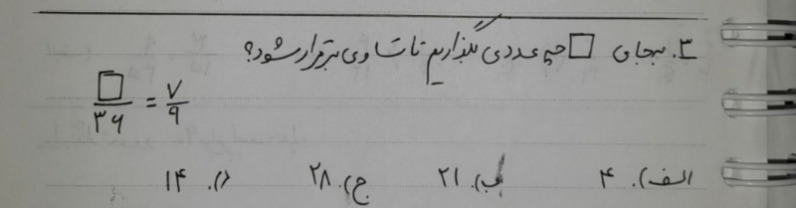 ۳. بجای □ چه عددی بگذاریم تا تساوی برقرار شود؟
□/۳۶ = ۷/۹
الف). ۴ ب). ۲۱ ج). ۲۸ د). ۱۴